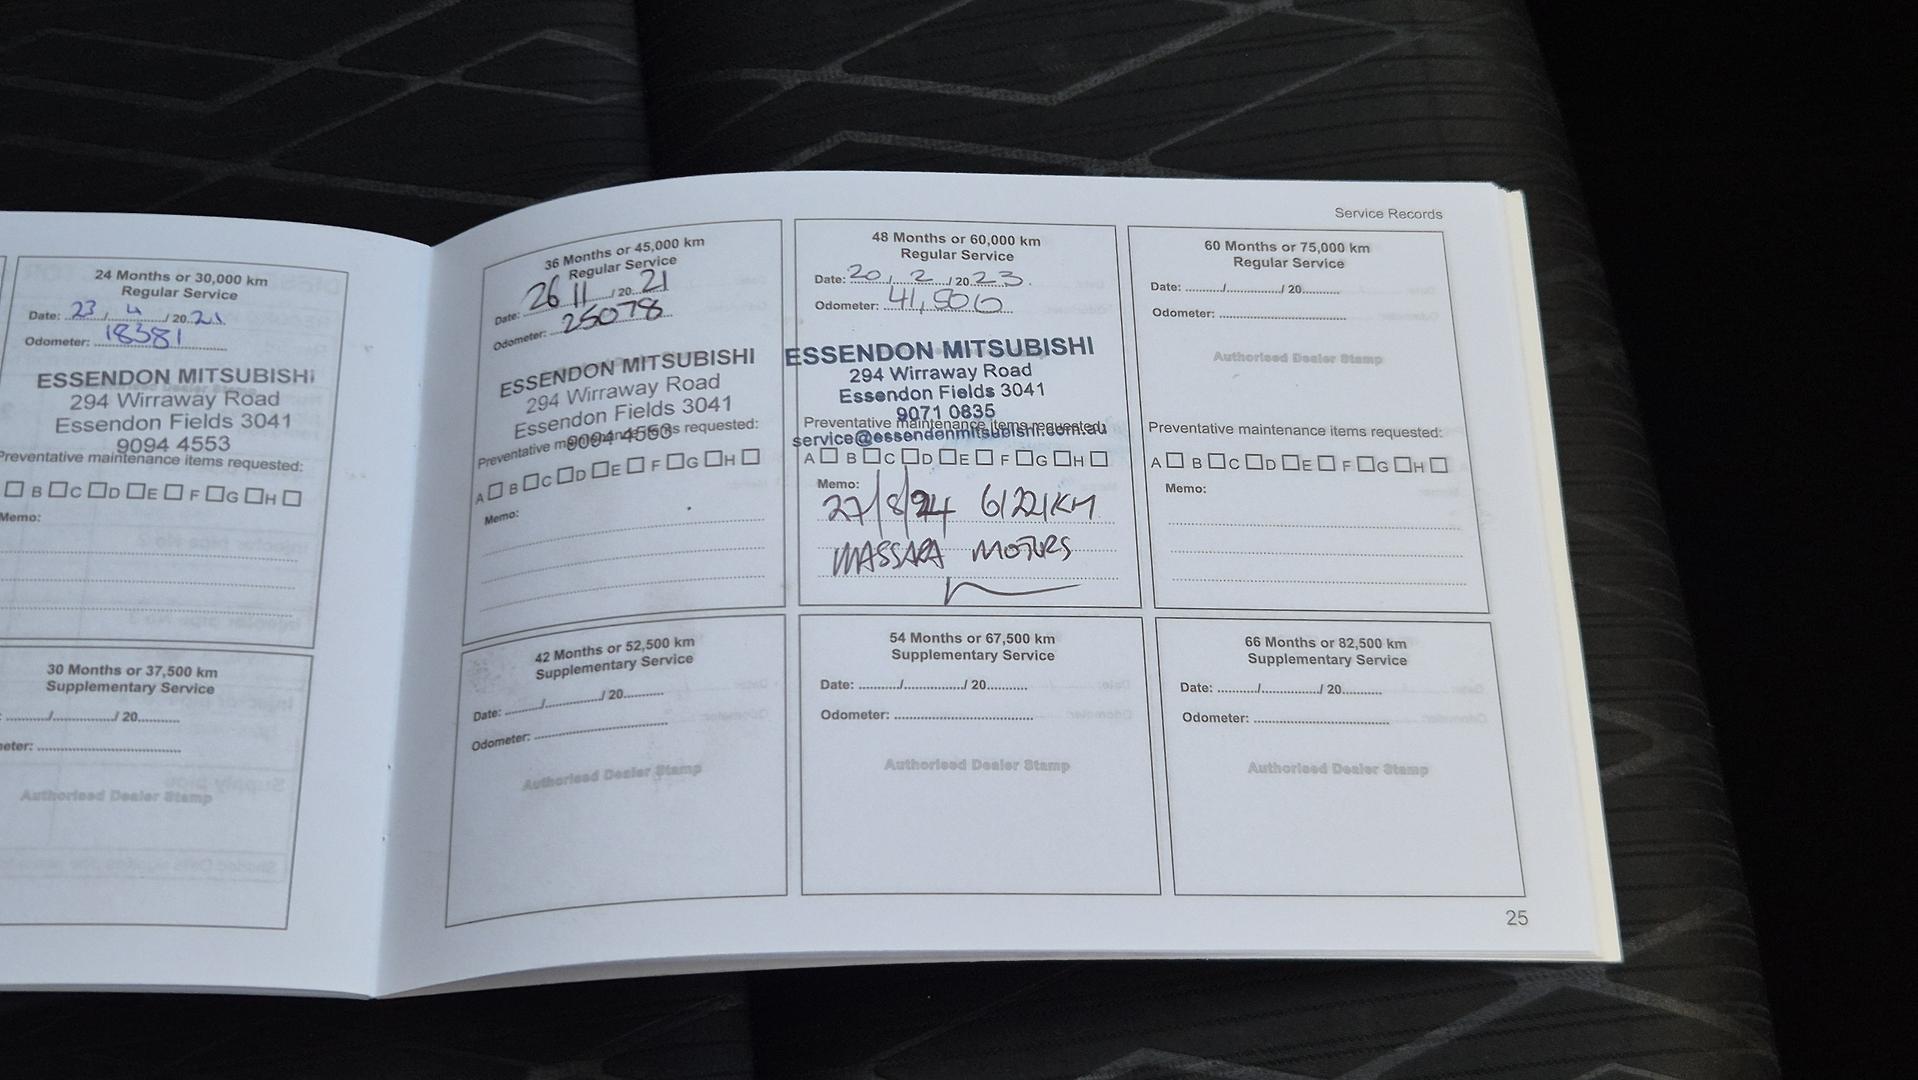 Service Records
24 Months or 30,000 km
Regular Service
Date: 23 / 4 / 20 21
Odometer: 18381
ESSENDON MITSUBISHI
294 Wirraway Road
Essendon Fields 3041
9094 4553
Preventative maintenance items requested:
B C D E F G H
Memo:
30 Months or 37,500 km
Supplementary Service
/ / 20
Authorised Dealer Stamp
36 Months or 45,000 km
Regular Service
Date: 26 11 / 20 21
Odometer: 25078
ESSENDON MITSUBISHI
294 Wirraway Road
Essendon Fields 3041
9094 4553
Preventative maintenance items requested:
A B C D E F G H
Memo:
42 Months or 52,500 km
Supplementary Service
Date: / / 20
Odometer:
Authorised Dealer Stamp
48 Months or 60,000 km
Regular Service
Date: 20 / 2 / 20 23
Odometer: 41,500
ESSENDON MITSUBISHI
294 Wirraway Road
Essendon Fields 3041
9071 0835
Preventative maintenance items requested:
service@essendonmitsubishi.com.au
A B C D E F G H
Memo:
27/8/24 61221KM
MASSARA MOTORS
54 Months or 67,500 km
Supplementary Service
Date: / / 20
Odometer:
Authorised Dealer Stamp
60 Months or 75,000 km
Regular Service
Date: / / 20
Odometer:
Authorised Dealer Stamp
Preventative maintenance items requested:
A B C D E F G H
Memo:
66 Months or 82,500 km
Supplementary Service
Date: / / 20
Odometer:
Authorised Dealer Stamp
25